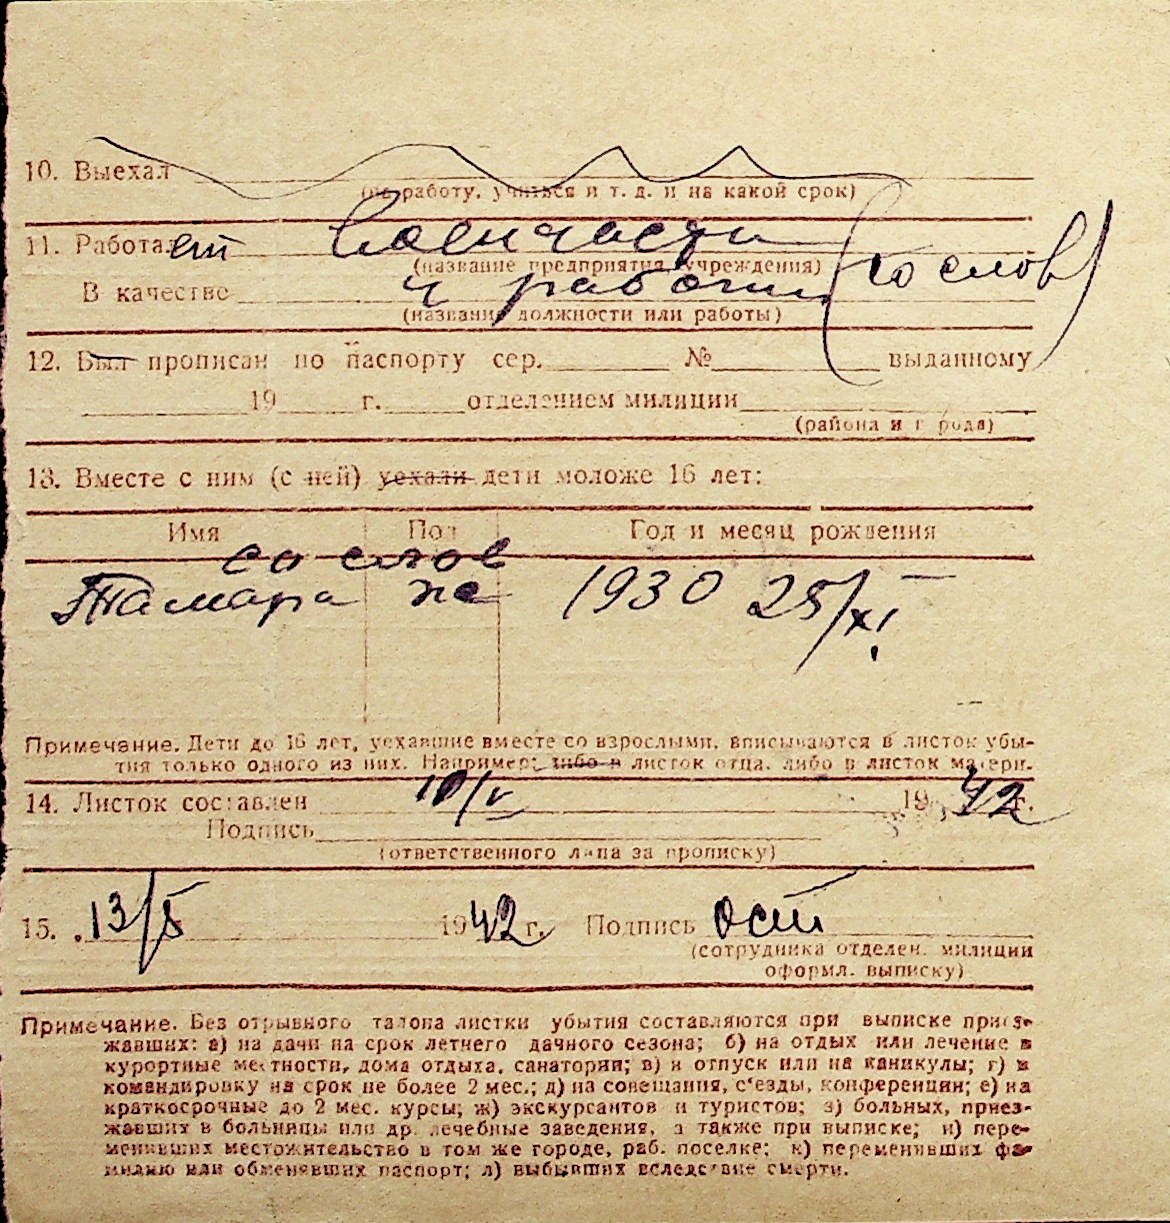 10. Выехал
(на работу, учиться и т. д. и на какой срок)
11. Работает Воен части
(название предприятия, учреждения) (со слов)
В качестве ч рабочий
(название должности или работы)
12. Был прописан по паспорту сер. № выданному
19 г. отделением милиции
(района и города)
13. Вместе с ним (с ней) уехали дети моложе 16 лет:
Имя Пол Год и месяц рождения
со слов
Тамара же 1930 25/XI
Примечание. Дети до 16 лет, уехавшие вместе со взрослыми, вписываются в листок убы-
тия только одного из них. Например: либо в листок отца, либо в листок матери.
14. Листок составлен 10/V 1942 г.
Подпись
(ответственного лица за прописку)
15. 13/5 1942 г. Подпись
(сотрудника отделен. милиции
оформл. выписку)
Примечание. Без отрывного талона листки убытия составляются при выписке приез-
жавших: а) на дачи на срок летнего дачного сезона; б) на отдых или лечение в
курортные местности, дома отдыха, санатории; в) в отпуск или на каникулы; г) в
командировку на срок не более 2 мес.; д) на совещания, с'езды, конференции; е) на
краткосрочные до 2 мес. курсы; ж) экскурсантов и туристов; з) больных, приез-
жавших в больницы или др. лечебные заведения, а также при выписке; и) пере-
менивших местожительство в том же городе, раб. поселке; к) переменивших фа-
милию или обменявших паспорт; л) выбывших вследствие смерти.